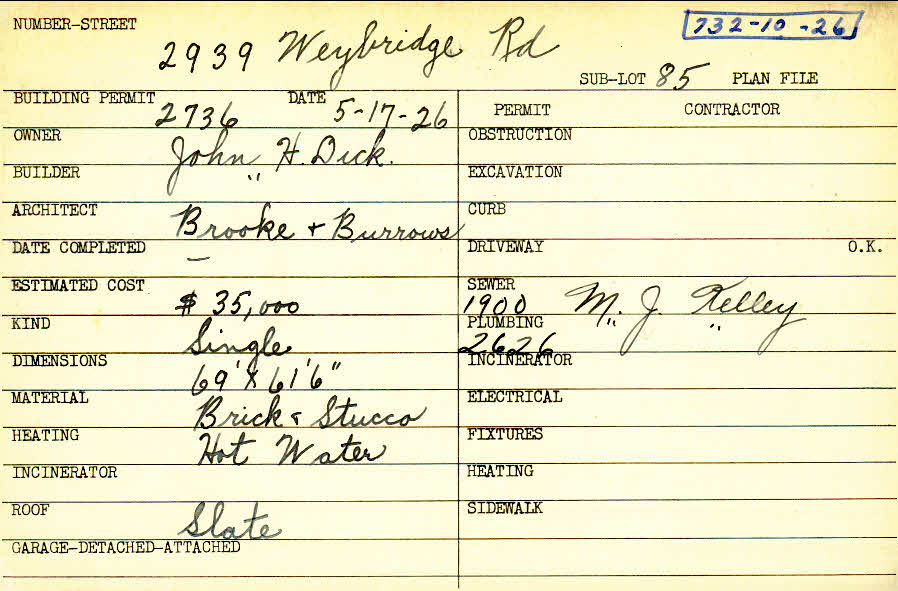 NUMBER-STREET 2939 Weybridge Rd 732-10-26
SUB-LOT 85 PLAN FILE
BUILDING PERMIT 2736 DATE 5-17-26
OWNER John H. Dick.
BUILDER " 
ARCHITECT Brooke + Burrows
DATE COMPLETED —
ESTIMATED COST $ 35,000
KIND Single
DIMENSIONS 69' X 61'6"
MATERIAL Brick & Stucco
HEATING Hot Water
INCINERATOR
ROOF Slate
GARAGE-DETACHED-ATTACHED
PERMIT CONTRACTOR
OBSTRUCTION
EXCAVATION
CURB
DRIVEWAY O.K.
SEWER 1900 M. J. Kelley
PLUMBING 2626 " "
INCINERATOR
ELECTRICAL
FIXTURES
HEATING
SIDEWALK